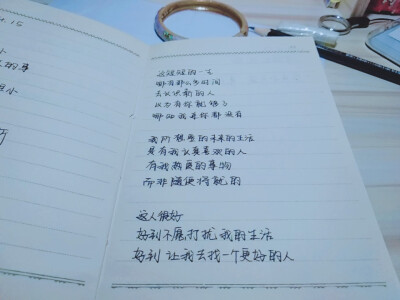 .15
小
的
小
这短短的一生
哪有那么多时间
去认识新的人
以为有你就够了
哪知我连你都没有
我所想要的未来的生活
有我认真喜欢的人
有我热爱的事物
而非随便将就的
这人很好
好到不愿打扰我的生活
好到让我去找一个更好的人